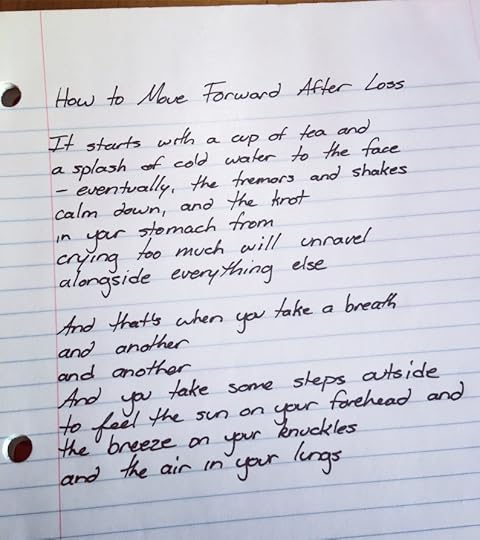 How to Move Forward After Loss
It starts with a cup of tea and
a splash of cold water to the face
– eventually, the tremors and shakes
calm down, and the knot
in your stomach from
crying too much will unravel
alongside everything else
And that's when you take a breath
and another
and another
And you take some steps outside
to feel the sun on your forehead and
the breeze on your knuckles
and the air in your lungs